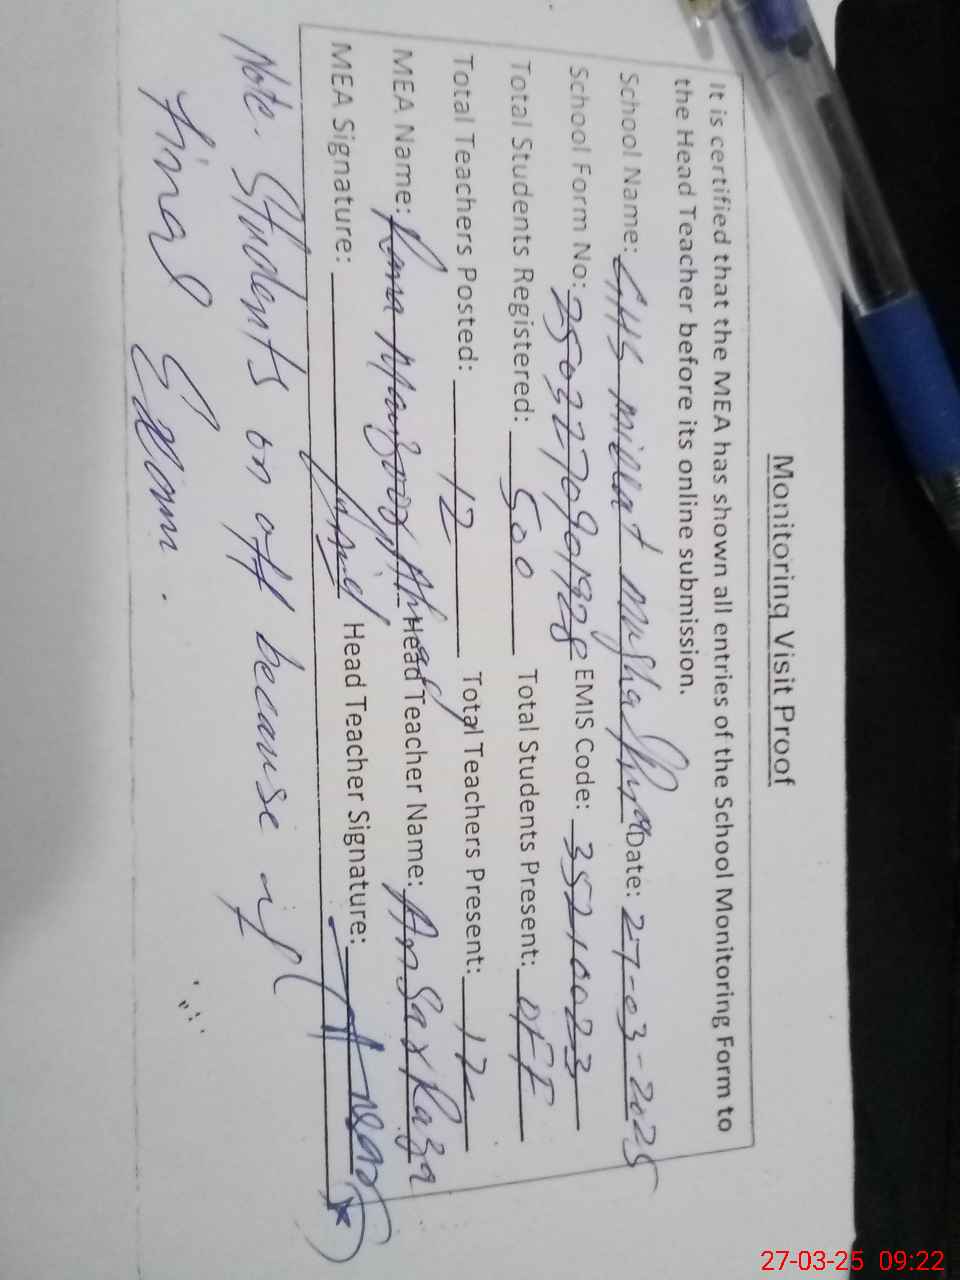 Monitoring Visit Proof
It is certified that the MEA has shown all entries of the School Monitoring Form to
the Head Teacher before its online submission.
School Name: GHS millat Date: 27-03-2025
School Form No: EMIS Code: 35210023
Total Students Registered: 500 Total Students Present: OFF
Total Teachers Posted: 12 Total Teachers Present: 12
MEA Name: Rana Head Teacher Name: Ansar Raza
MEA Signature: Head Teacher Signature:
Note. Students on off because of
final Exam.
27-03-25 09:22